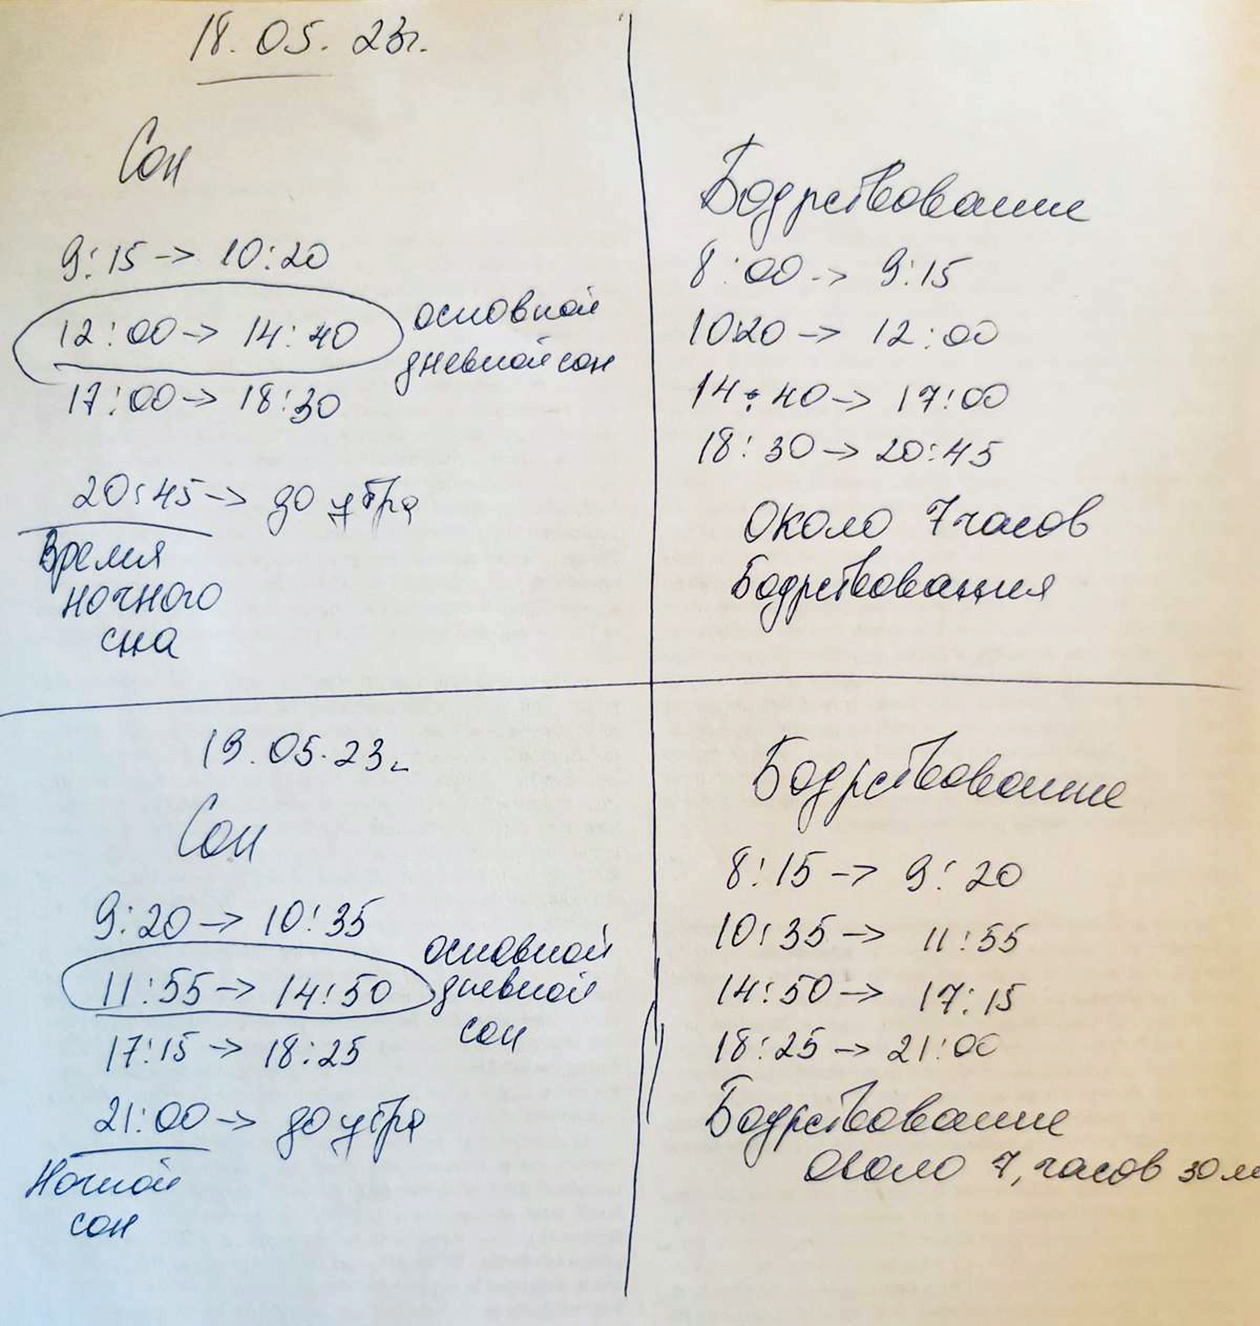 18.05.23г.
Сон
9:15 -> 10:20
12:00 -> 14:40
основной
дневной сон
17:00 -> 18:30
20:45 -> до утра
Время
ночного
сна
Бодрствование
8:00 -> 9:15
10:20 -> 12:00
14:40 -> 17:00
18:30 -> 20:45
Около 7 часов
Бодрствования
19.05.23г
Сон
9:20 -> 10:35
11:55 -> 14:50
основной
дневной
сон
17:15 -> 18:25
21:00 -> до утра
Ночной
сон
Бодрствование
8:15 -> 9:20
10:35 -> 11:55
14:50 -> 17:15
18:25 -> 21:00
Бодрствование
около 7, часов 30 м